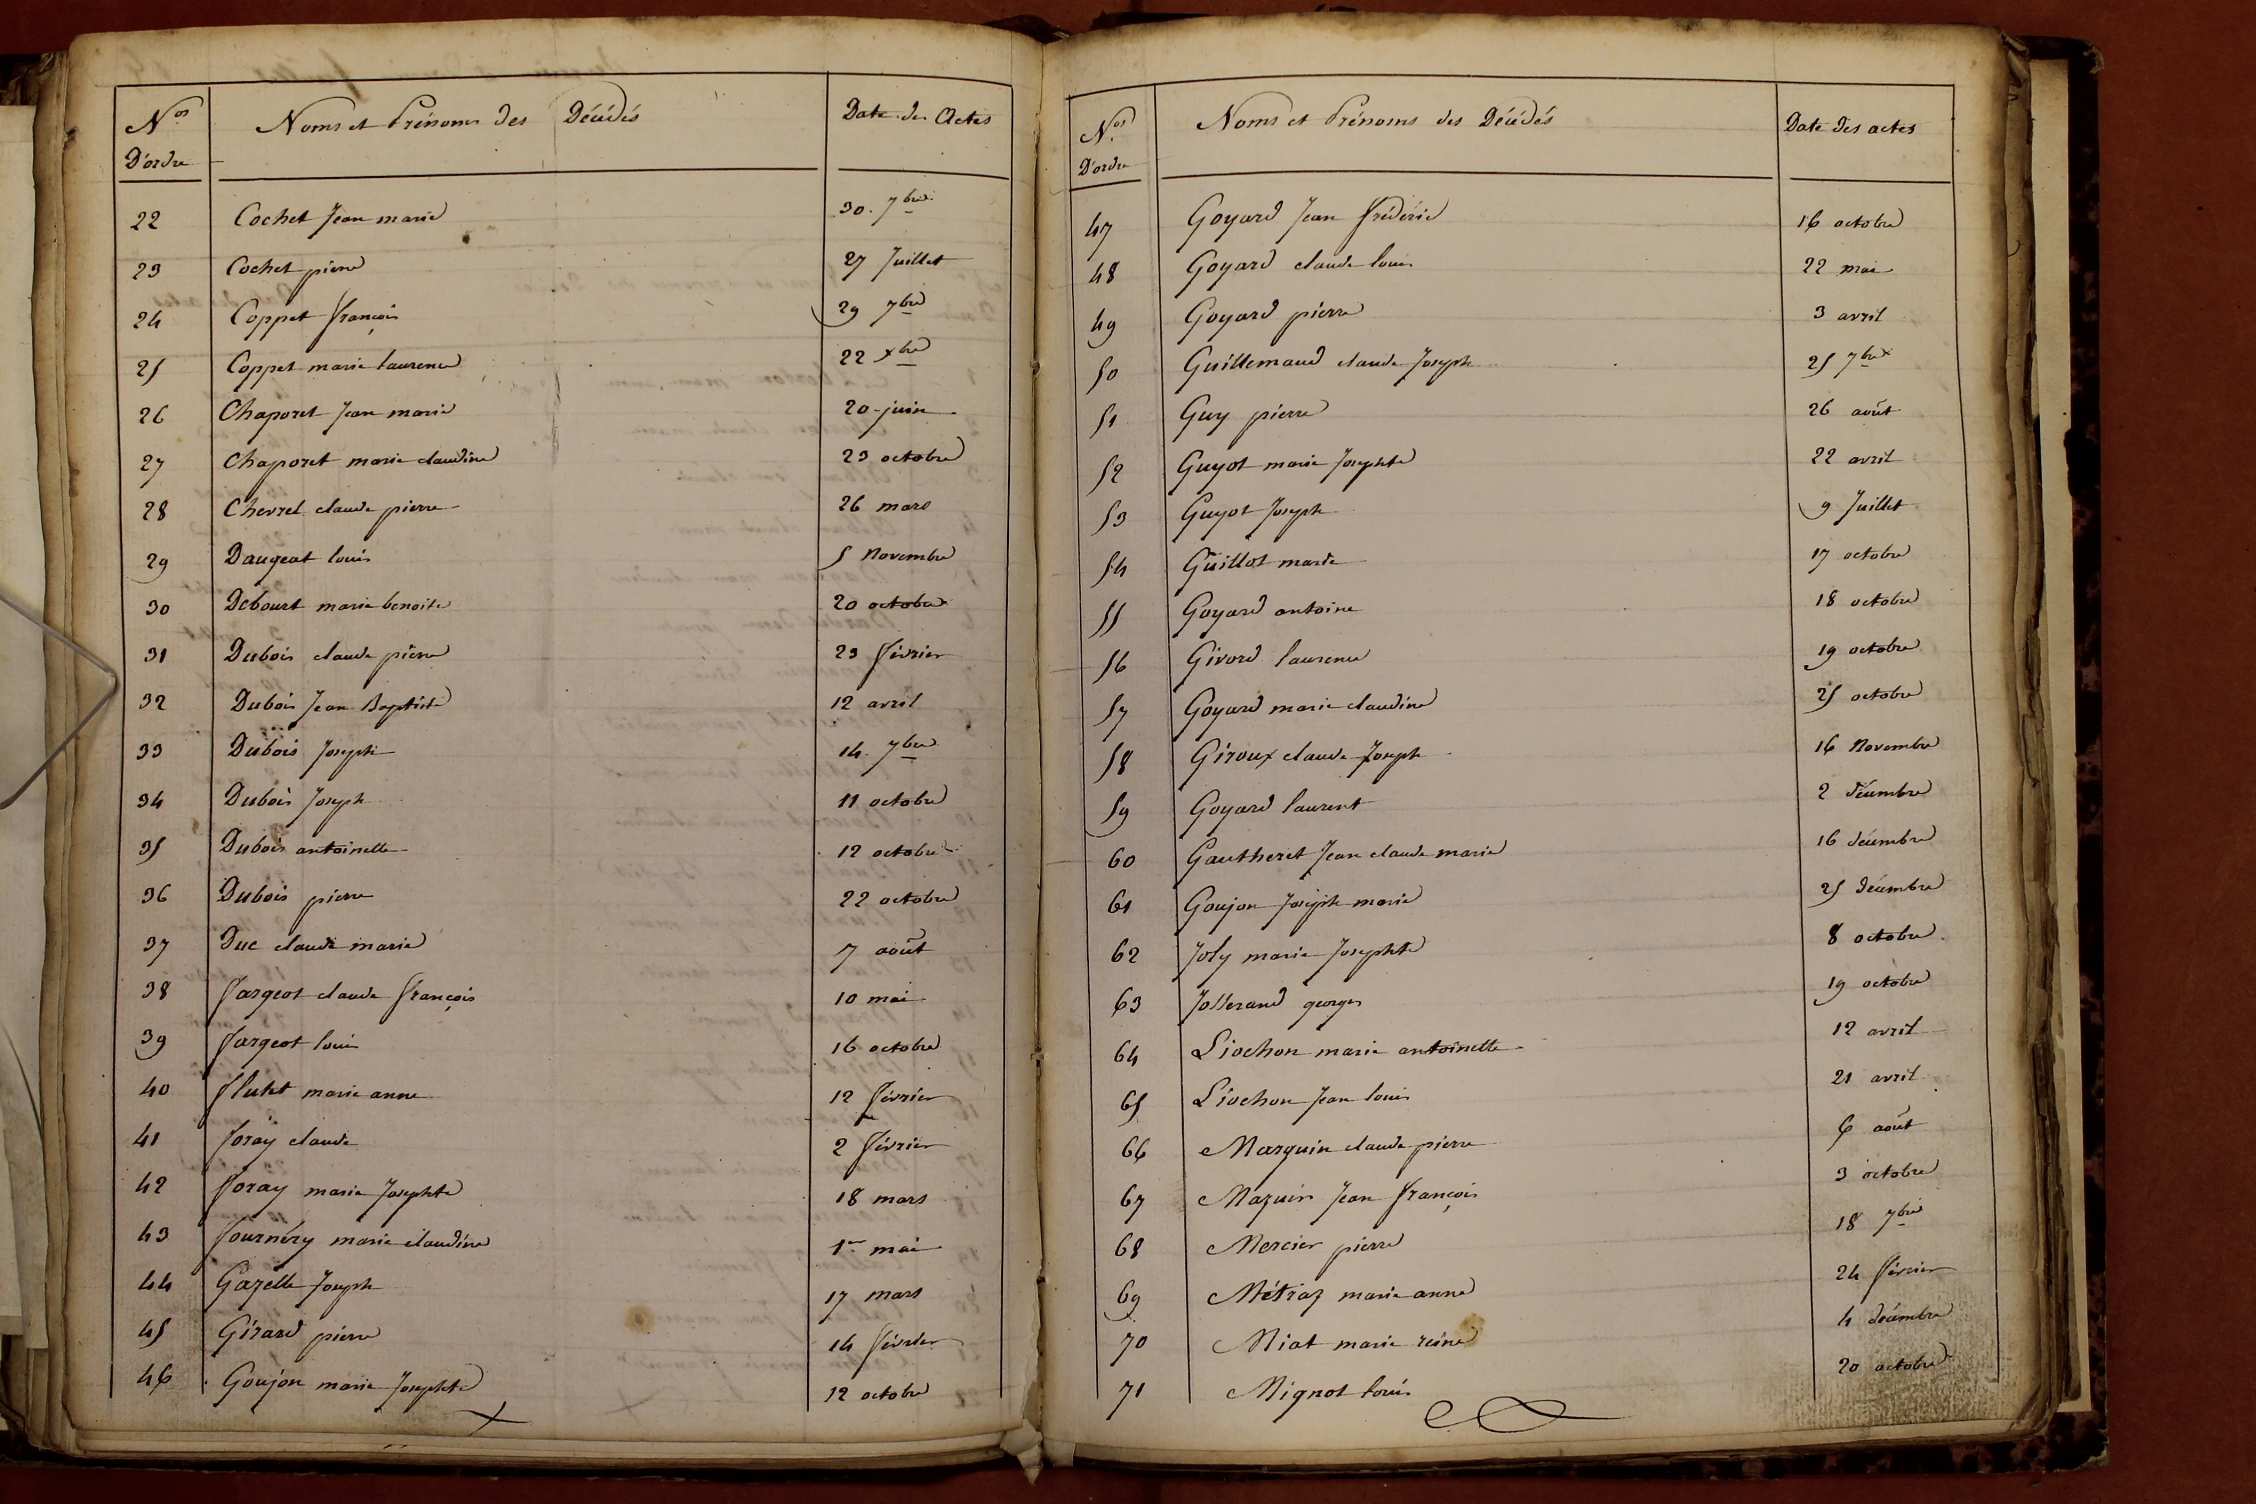 Nos D'ordre Noms et Prénoms des Décédés Date des Actes
22 Cochet Jean marie 30 7bre
23 Cochet pierre 27 Juillet
24 Coppet françois 29 7bre
25 Coppet marie laurence 22 xbre
26 Chaporet Jean marie 20 juin
27 Chaporet marie claudine 23 octobre
28 Chevrel claude pierre 26 mars
29 Daugeat louis 5 Novembre
30 Debourt marie benoite 20 octobre
31 Dubois claude pierre 23 février
32 Dubois Jean Baptiste 12 avril
33 Dubois Joseph 14 7bre
34 Dubois Joseph 11 octobre
35 Dubois antoinette 12 octobre
36 Dubois pierre 22 octobre
37 Duc claude marie 7 août
38 fargeot claude françois 10 mai
39 fargeot louis 16 octobre
40 flutet marie anne 12 février
41 foray claude 2 février
42 foray marie Josephte 18 mars
43 fournéry marie claudine 1er mai
44 Gazelle Joseph 17 mars
45 Girard pierre 14 février
46 Goujon marie Josephte 12 octobre
Nos D'ordre Noms et Prénoms des Décédés Date des actes
47 Goyard Jean frédéric 16 octobre
48 Goyard claude louis 22 mai
49 Goyard pierre 3 avril
50 Guillemaud claude Joseph 25 7bre
51 Guy pierre 26 août
52 Guyot marie Josephte 22 avril
53 Guyot Joseph 9 Juillet
54 Guillot marie 17 octobre
55 Goyard antoine 18 octobre
56 Givord laurence 19 octobre
57 Goyard marie claudine 25 octobre
58 Giroux claude Joseph 16 Novembre
59 Goyard laurent 2 décembre
60 Gautheret Jean claude marie 16 décembre
61 Goujon Joseph marie 25 décembre
62 Joly marie Josephte 8 octobre
63 Jollerand georges 19 octobre
64 Liochon marie antoinette 12 avril
65 Liochon Jean louis 21 avril
66 Marguin claude pierre 6 août
67 Mazuir Jean françois 3 octobre
68 Mercier pierre 18 7bre
69 Métraz marie anne 24 février
70 Miat marie reine 4 décembre
71 Mignot louis 20 octobre